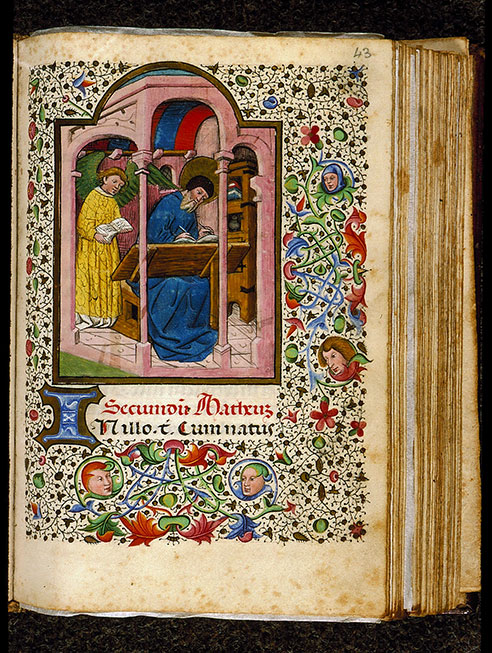 43
I Secundū Matheuz
N illo. t. Cum natus